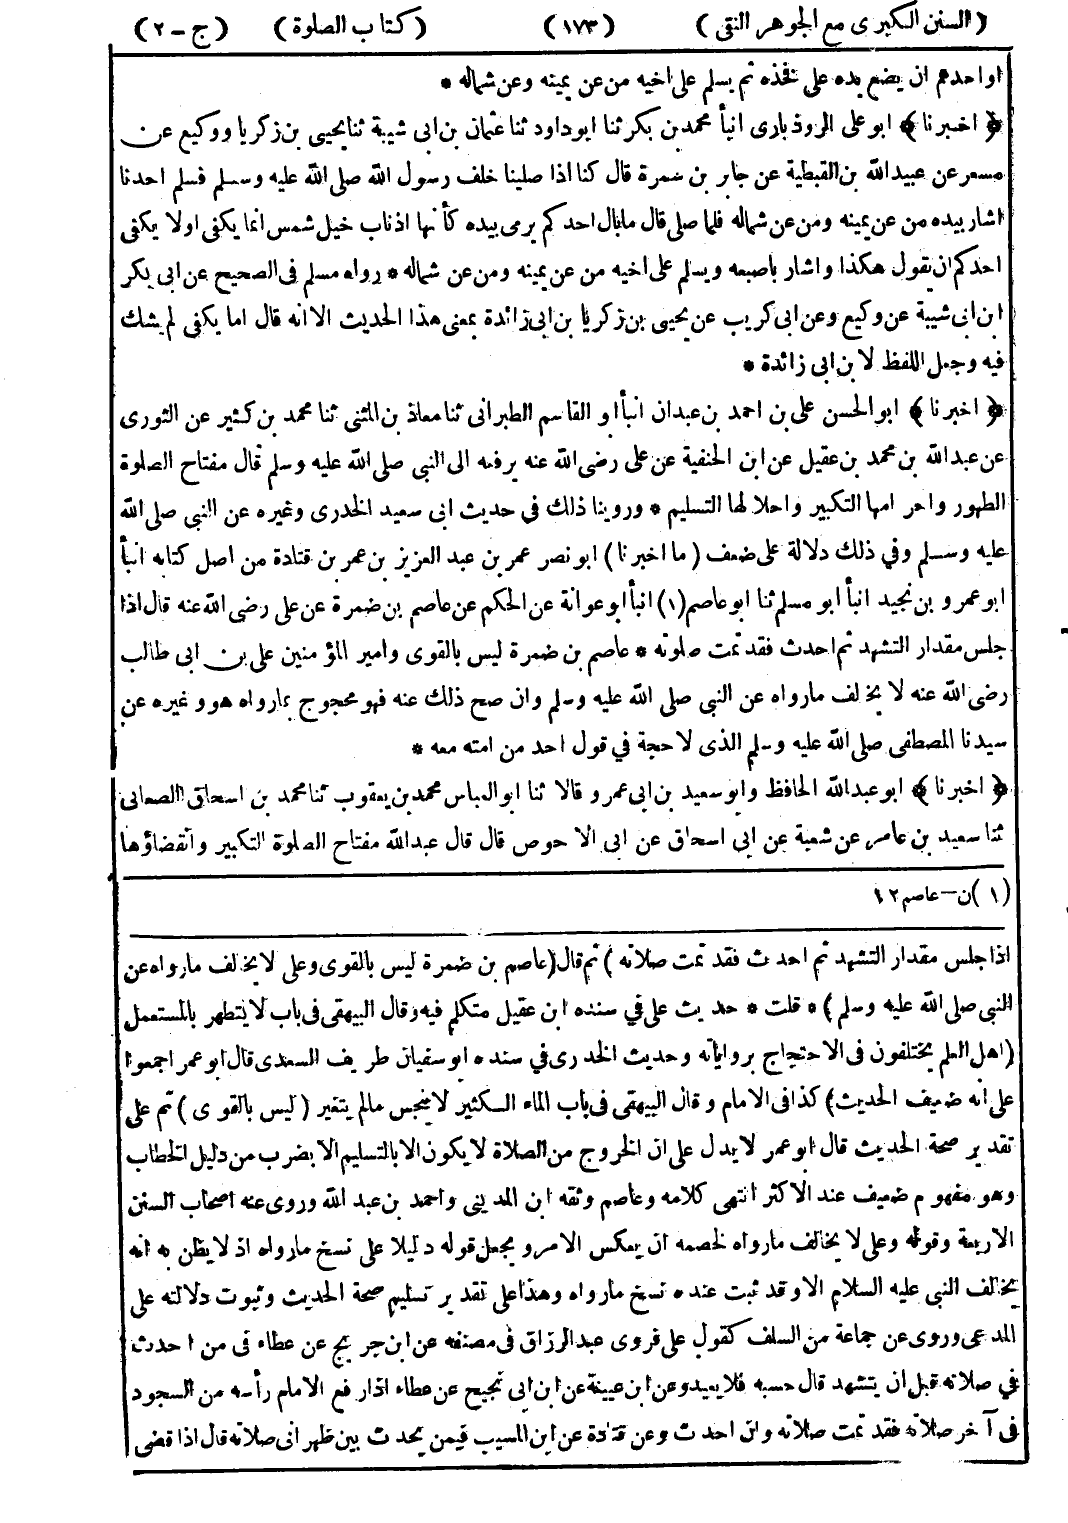 (السنن الكبرى مع الجوهر النقى) (١٧٣) (كتاب الصلوة) (ج-٢)
او احدهم ان يضع يده على فخذه ثم يسلم على اخيه من عن يمينه وعن شماله *
﴿ اخبرنا ﴾ ابو على الروذبارى انبأ محمد بن بكر ثنا ابو داود ثنا عثمان بن ابى شيبة ثنا يحيى بن زكريا ووكيع عن
مسعر عن عبيد الله بن القبطية عن جابر بن سمرة قال كنا اذا صلينا خلف رسول الله صلى الله عليه وسلم فسلم احدنا
اشار بيده من عن يمينه ومن عن شماله فلما صلى قال ما بال احدكم يرمى بيده كأنها اذناب خيل شمس انما يكفى او لا يكفى
احدكم ان يقول هكذا واشار باصبعه ويسلم على اخيه من عن يمينه ومن عن شماله * رواه مسلم فى الصحيح عن ابى بكر
ابن ابى شيبة عن وكيع وعن ابى كريب عن يحيى بن زكريا بن ابى زائدة بمعنى هذا الحديث الا انه قال اما يكفى لم يشك
فيه وجعل اللفظ لابن ابى زائدة *
﴿ اخبرنا ﴾ ابو الحسن على بن احمد بن عبدان انبأ ابو القاسم الطبرانى ثنا معاذ بن المثنى ثنا محمد بن كثير عن الثورى
عن عبد الله بن محمد بن عقيل عن ابن الحنفية عن على رضى الله عنه يرفعه الى النبى صلى الله عليه وسلم قال مفتاح الصلوة
الطهور واحرامها التكبير واحلالها التسليم * وروينا ذلك في حديث ابى سعيد الخدرى وغيره عن النبى صلى الله
عليه وسلم وفي ذلك دلالة على ضعف (ما اخبرنا) ابو نصر عمر بن عبد العزيز بن عمر بن قتادة من اصل كتابه انبأ
ابو عمرو بن نجيد انبأ ابو مسلم ثنا ابو عاصم (١) انبأ ابو عوانة عن الحكم عن عاصم بن ضمرة عن على رضى الله عنه قال اذا
جلس مقدار التشهد ثم احدث فقد تمت صلوته * عاصم بن ضمرة ليس بالقوى وامير المؤمنين على بن ابى طالب
رضى الله عنه لا يخالف ما رواه عن النبى صلى الله عليه وسلم وان صح ذلك عنه فهو محجوج بما رواه هو وغيره عن
سيدنا المصطفى صلى الله عليه وسلم الذى لا حجة في قول احد من امته معه *
﴿ اخبرنا ﴾ ابو عبد الله الحافظ وابو سعيد بن ابى عمرو قالا ثنا ابو العباس محمد بن يعقوب ثنا محمد بن اسحاق الصغانى
ثنا سعيد بن عامر عن شعبة عن ابى اسحاق عن ابى الاحوص قال قال عبد الله مفتاح الصلوة التكبير وانقضاؤها
(١) ن-عاصم ١٢
اذا جلس مقدار التشهد ثم احدث فقد تمت صلاته) ثم قال (عاصم بن ضمرة ليس بالقوى وعلى لا يخالف ما رواه عن
النبى صلى الله عليه وسلم) * قلت * حديث على في سنده ابن عقيل متكلم فيه وقال البيهقى فى باب لا يتطهر بالمستعمل
(اهل العلم يختلفون فى الاحتجاج برواياته وحديث الخدرى في سنده ابو سفيان طريف السعدى قال ابو عمر اجمعوا
على انه ضعيف الحديث) كذا فى الامام وقال البيهقى فى باب الماء الكثير لا ينجس مالم يتغير (ليس بالقوى) ثم على
تقدير صحة الحديث قال ابو عمر لا يدل على ان الخروج من الصلاة لا يكون الا بالتسليم الا بضرب من دليل الخطاب
وهو مفهوم ضعيف عند الاكثر انتهى كلامه وعاصم وثقه ابن المدينى واحمد بن عبد الله وروى عنه اصحاب السنن
الاربعة وقوله وعلى لا يخالف ما رواه لخصمه ان يعكس الامر ويجعل قوله دليلا على نسخ ما رواه اذ لا يظن به انه
يخالف النبى عليه السلام الا وقد ثبت عنده نسخ ما رواه وهذا على تقدير تسليم صحة الحديث وثبوت دلالته على
المدعى وروى عن جماعة من السلف كقول على فروى عبد الرزاق فى مصنفه عن ابن جريج عن عطاء فى من احدث
في صلاته قبل ان يتشهد قال حسبه فلا يعيد وعن ابن عيينة عن ابن ابى نجيح عن عطاء اذا رفع الامام رأسه من السجود
فى آخر صلاته فقد تمت صلاته وان احدث وعن قتادة عن ابن المسيب فيمن يحدث بين ظهرانى صلاته قال اذا قضى